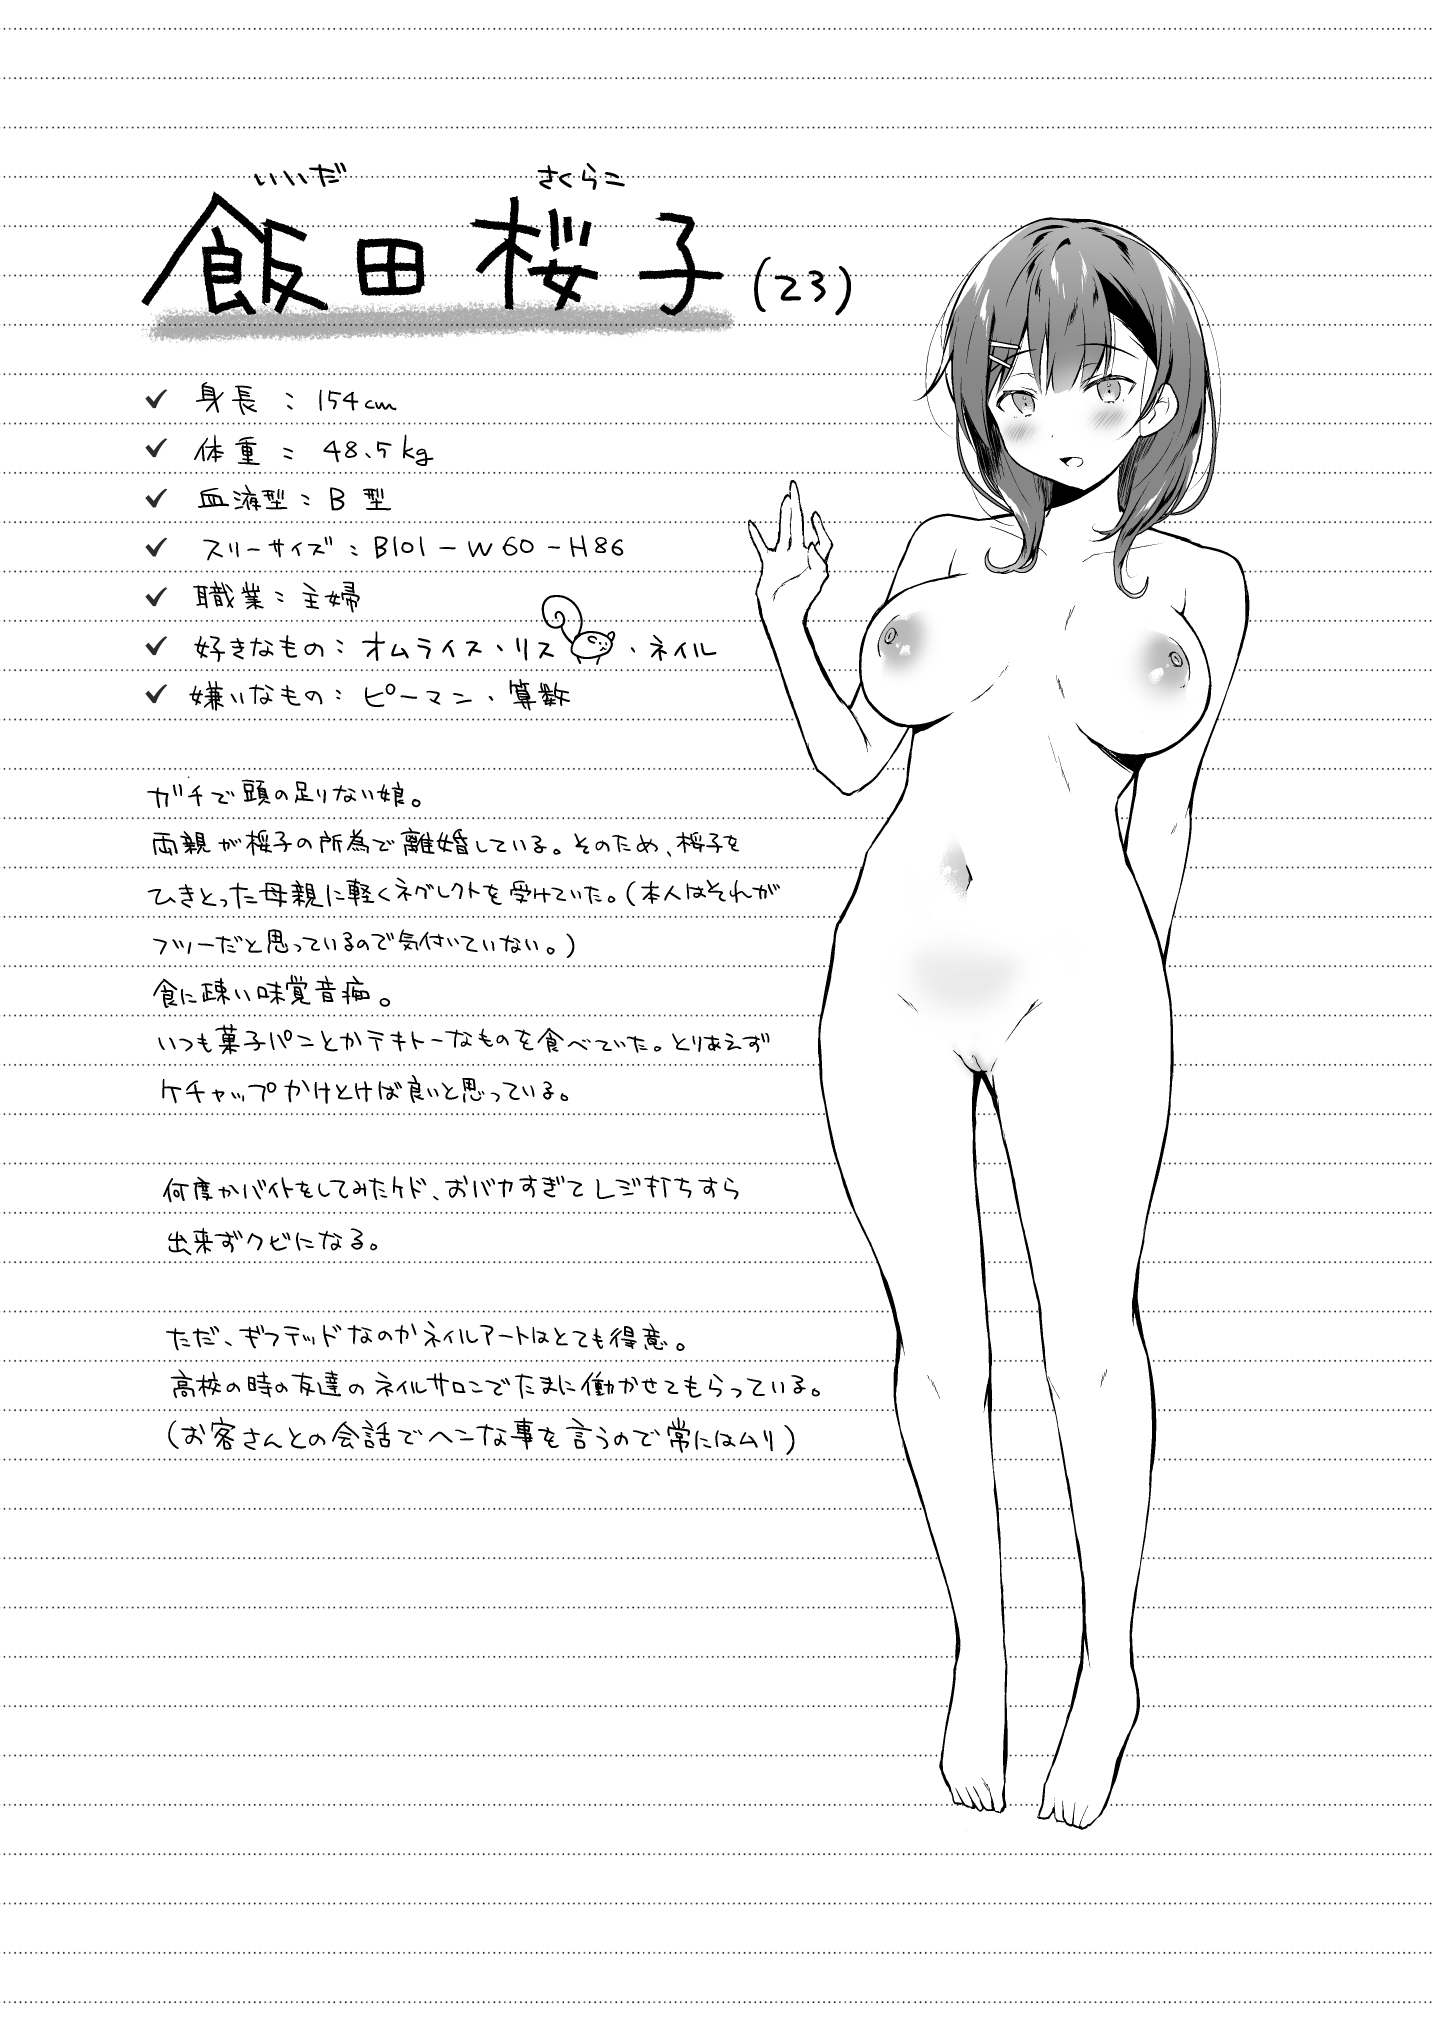 いいだ さくらこ
飯田 桜子 (23)
✓ 身長 : 154cm
✓ 体重 : 48.5kg
✓ 血液型 : B型
✓ スリーサイズ : B101-W60-H86
✓ 職業 : 主婦
✓ 好きなもの : オムライス・リス・ネイル
✓ 嫌いなもの : ピーマン・算数
ガチで頭の足りない娘。
両親が桜子の所為で離婚している。そのため、桜子を
ひきとった母親に軽くネグレクトを受けていた。(本人はそれが
フツーだと思っているので気付いていない。)
食に疎い味覚音痴。
いつも菓子パンとかテキトーなものを食べていた。とりあえず
ケチャップかけとけば良いと思っている。
何度かバイトをしてみたケド、おバカすぎてレジ打ちすら
出来ずクビになる。
ただ、ギフテッドなのかネイルアートはとても得意。
高校の時の友達のネイルサロンでたまに働かせてもらっている。
(お客さんとの会話でヘンな事を言うので常にはムリ)